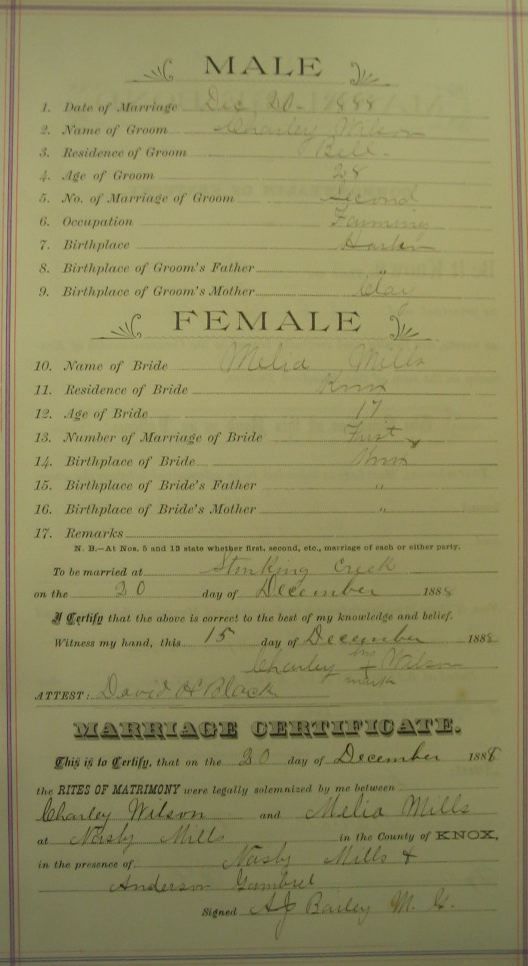 MALE
1. Date of Marriage Dec 20 - 1888
2. Name of Groom Charley Wilson
3. Residence of Groom Bell
4. Age of Groom 28
5. No. of Marriage of Groom Second
6. Occupation Farming
7. Birthplace Harlan
8. Birthplace of Groom's Father "
9. Birthplace of Groom's Mother Clay
FEMALE
10. Name of Bride Melia Mills
11. Residence of Bride Knox
12. Age of Bride 17
13. Number of Marriage of Bride First
14. Birthplace of Bride Knox
15. Birthplace of Bride's Father "
16. Birthplace of Bride's Mother "
17. Remarks
N. B.—At Nos. 5 and 13 state whether first, second, etc., marriage of each or either party.
To be married at Stinking Creek
on the 20 day of December 1888
I Certify that the above is correct to the best of my knowledge and belief.
Witness my hand, this 15 day of December 1888
Charley his x mark Wilson
ATTEST: David H Black
MARRIAGE CERTIFICATE.
This is to Certify, that on the 20 day of December 1888
the RITES OF MATRIMONY were legally solemnized by me between
Charley Wilson and Melia Mills
at Nasby Mills in the County of KNOX,
in the presence of Nasby Mills &
Anderson Gambrel
Signed A J Bailey M. G.